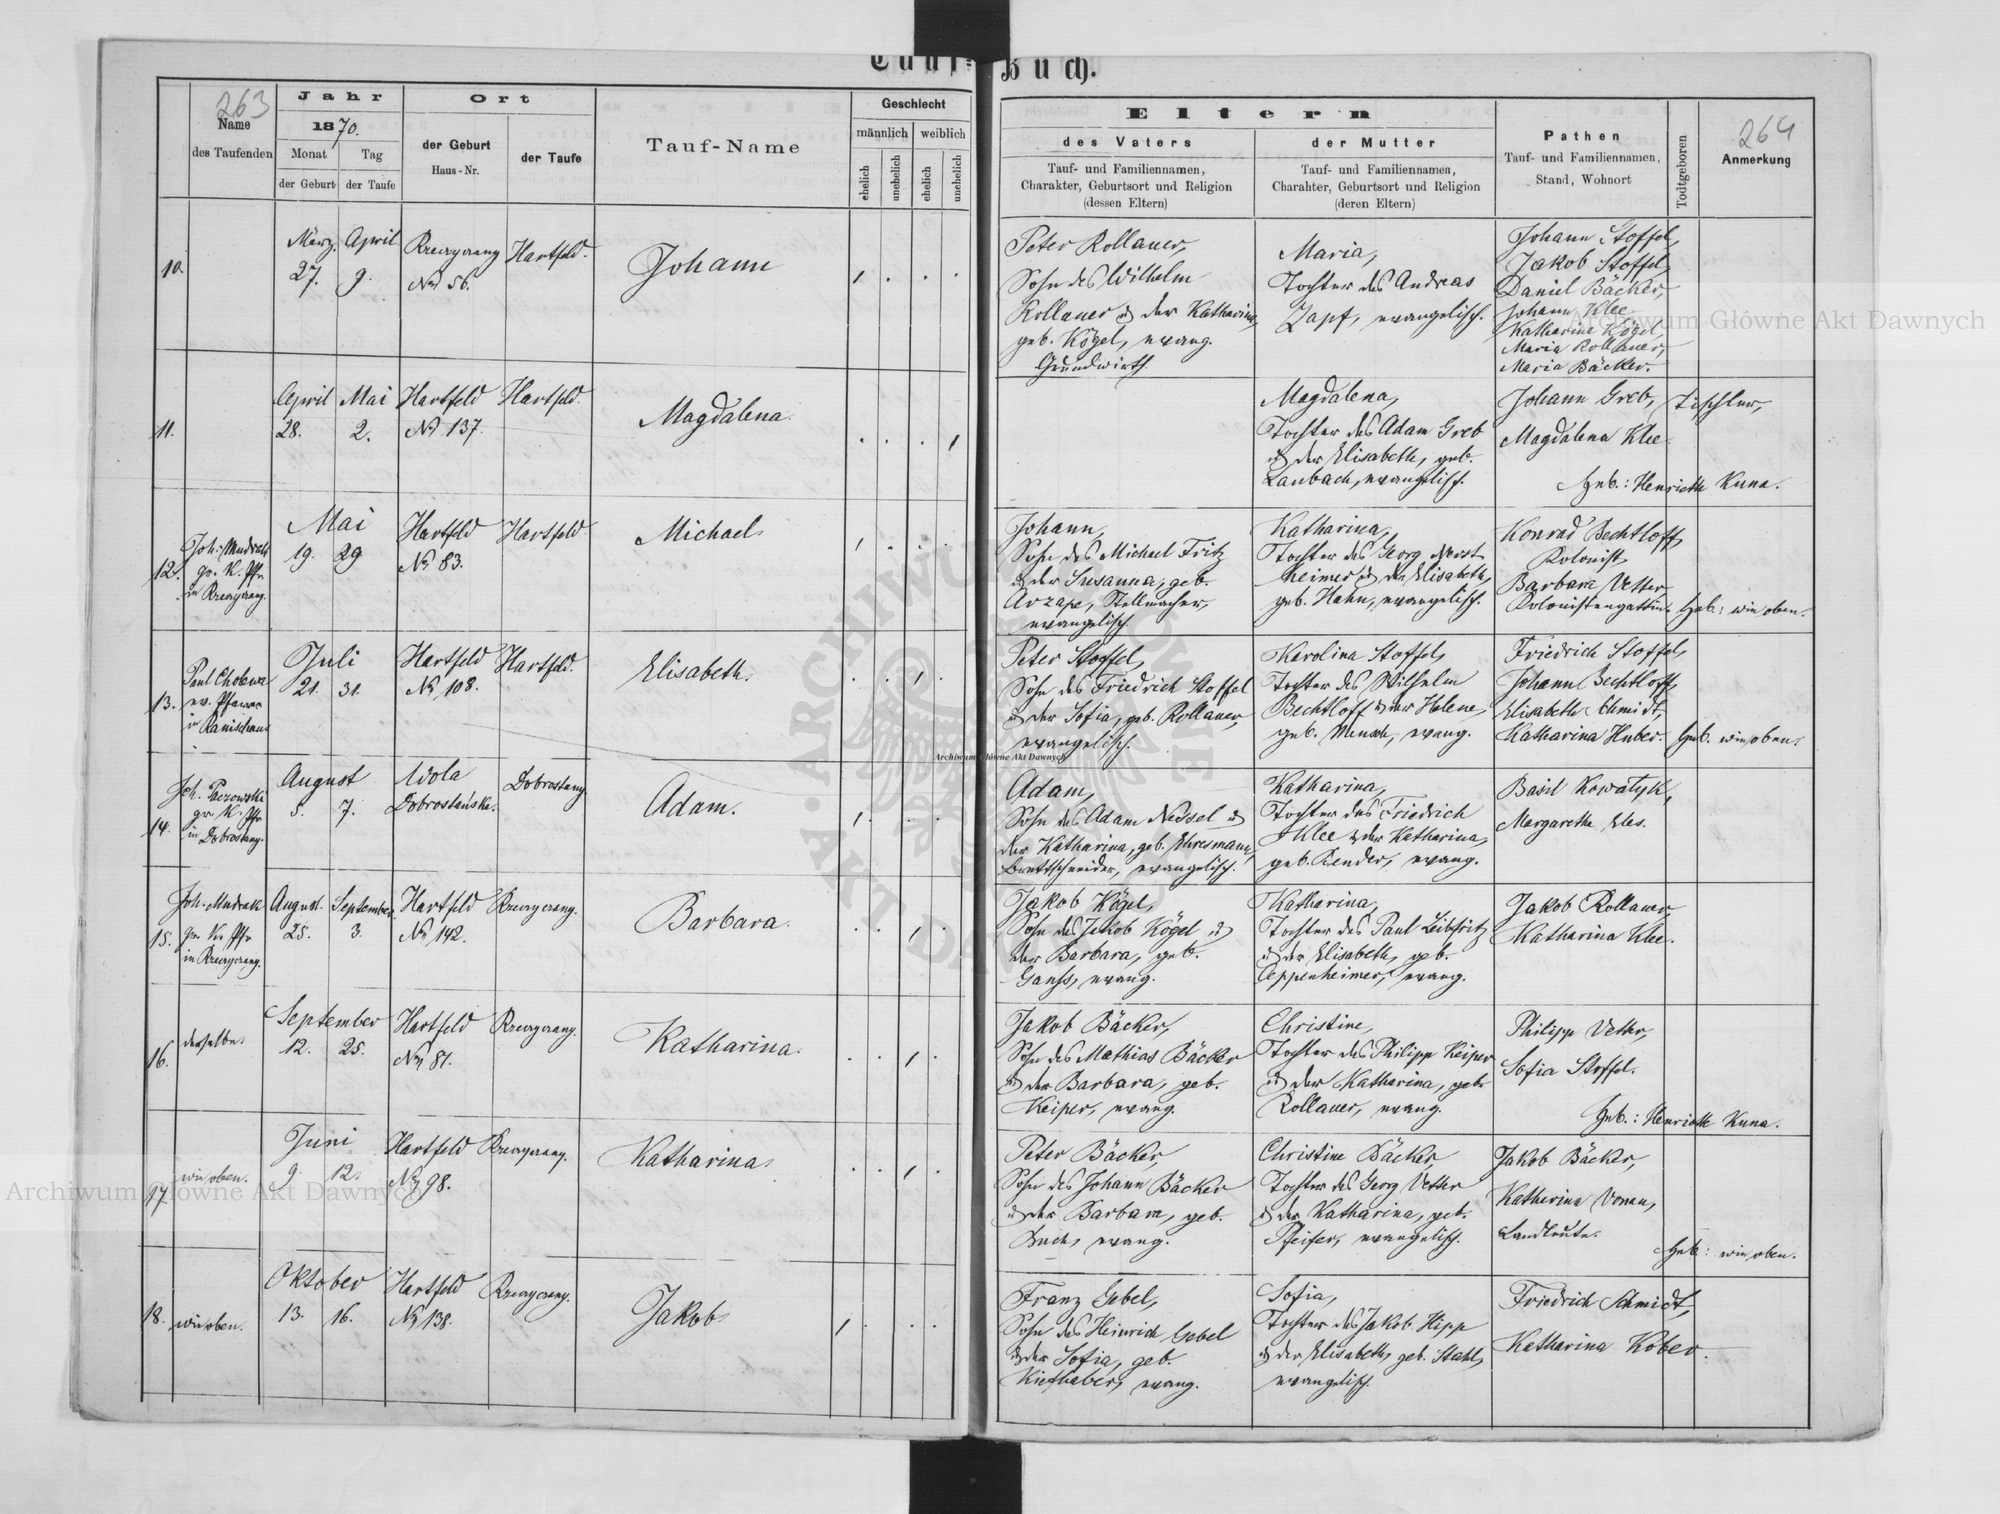 Tauf-Buch.
263
Name
des Taufenden
Jahr
1870.
Monat
Tag
der Geburt
der Taufe
Ort
der Geburt
Haus-Nr.
der Taufe
Tauf-Name
Geschlecht
männlich
weiblich
ehelich
unehelich
ehelich
unehelich
Eltern
des Vaters
Tauf- und Familiennamen,
Charakter, Geburtsort und Religion
(dessen Eltern)
der Mutter
Tauf- und Familiennamen,
Charakter, Geburtsort und Religion
(deren Eltern)
Pathen
Tauf- und Familiennamen,
Stand, Wohnort
Todtgeboren
264
Anmerkung
10.
März. April
27. 9.
No 56.
Hartfeld.
Johann
Peter Rollauer,
Sohn des Wilhelm
Rollauer & der Katharina,
geb. Kögel, evang.
Grundwirth.
Maria,
Tochter des Andreas
Zapf, evangelisch.
Johann Stoffel,
Jakob Stoffel,
Daniel Bäcker,
Johann Klee
Katharina Kögel,
Maria Rollauer,
Maria Bäcker.
11.
April Mai
28. 2.
Hartfeld
No 137.
Hartfeld.
Magdalena.
Magdalena,
Tochter des Adam Greb
& der Elisabeth, geb.
Laubach, evangelisch.
Johann Greb, Tischler,
Magdalena Klee.
Heb.: Henriette Kuna.
12.
Joh. Mudrak
gr. K. Pfr
in
Mai
19. 29
Hartfeld
No 83.
Hartfeld
Michael.
Johann,
Sohn des Michael Fritz
& der Susanna, geb.
Stellmacher,
evangelisch.
Katharina,
Tochter des Georg
heimer & der Elisabeth,
geb. Hahn, evangelisch.
Konrad Bechtloff,
Kolonist,
Barbara Vetter
Kolonistengattin. Heb.: wie oben.
13.
Paul Cholewa
ev. Pfarrer
in Ranischau
Juli
21. 31.
Hartfeld
No 108.
Hartfeld.
Elisabeth.
Peter Stoffel,
Sohn des Friedrich Stoffel
& der Sofia, geb. Rollauer,
evangelisch.
Karolina Stoffel,
Tochter des Wilhelm
Bechtloff & der Helene,
geb. evang.
Friedrich Stoffel,
Johann Bechtloff,
Elisabeth Schmidt,
Katharina Huber. Heb. wie oben.
14.
Joh. Paczowski
gr. K. Pfr
in Dobrostany.
August
5. 7.
Wola
Dobrostańska.
Dobrostany
Adam.
Adam,
Sohn des Adam Nessel &
der Katharina, geb. Ehresmann,
Brettschneider, evangelisch.
Katharina,
Tochter des Friedrich
Klee & der Katharina,
geb. Render, evang.
Basil Kowalyk,
Margaretha Eles.
15.
Joh. Mudrak
gr. K. Pfr
in
August. September.
25. 3.
Hartfeld
No 142.
Barbara.
Jakob Kögel,
Sohn des Jakob Kögel &
der Barbara, geb.
Ganss, evang.
Katharina,
Tochter des Paul Leibfritz
& der Elisabeth, geb.
Oppenheimer, evang.
Jakob Rollauer,
Katharina Klee.
16.
derselbe.
September
12. 25.
Hartfeld
No 81.
Katharina.
Jakob Bäcker,
Sohn des Mathias Bäcker
& der Barbara, geb.
Keiper, evang.
Christine,
Tochter des Philipp Keiper
& der Katharina, geb.
Rollauer, evang.
Philipp Vetter,
Sofia Stoffel.
Heb.: Henriette Kuna.
17.
wie oben.
Juni
9. 12.
Hartfeld
No 98.
Katharina.
Peter Bäcker,
Sohn des Johann Bäcker
& der Barbara, geb.
Buch, evang.
Christine Bäcker,
Tochter des Georg Vetter
& der Katharina, geb.
Pfeifer, evangelisch.
Jakob Bäcker,
Katharina Vonau,
Landleute.
Heb.: wie oben.
18.
wie oben.
Oktober
13. 16.
Hartfeld
No 138.
Jakob
Franz Gebel,
Sohn des Heinrich Gebel
& der Sofia, geb.
Kiefhaber, evang.
Sofia,
Tochter des Jakob Hipp
& der Elisabeth, geb. Stahl,
evangelisch.
Friedrich Schmidt,
Katharina Kober.
Archiwum Główne Akt Dawnych
Archiwum Główne Akt Dawnych
Archiwum Główne Akt Dawnych
ARCHIWUM GŁÓWNE AKT DAWNYCH